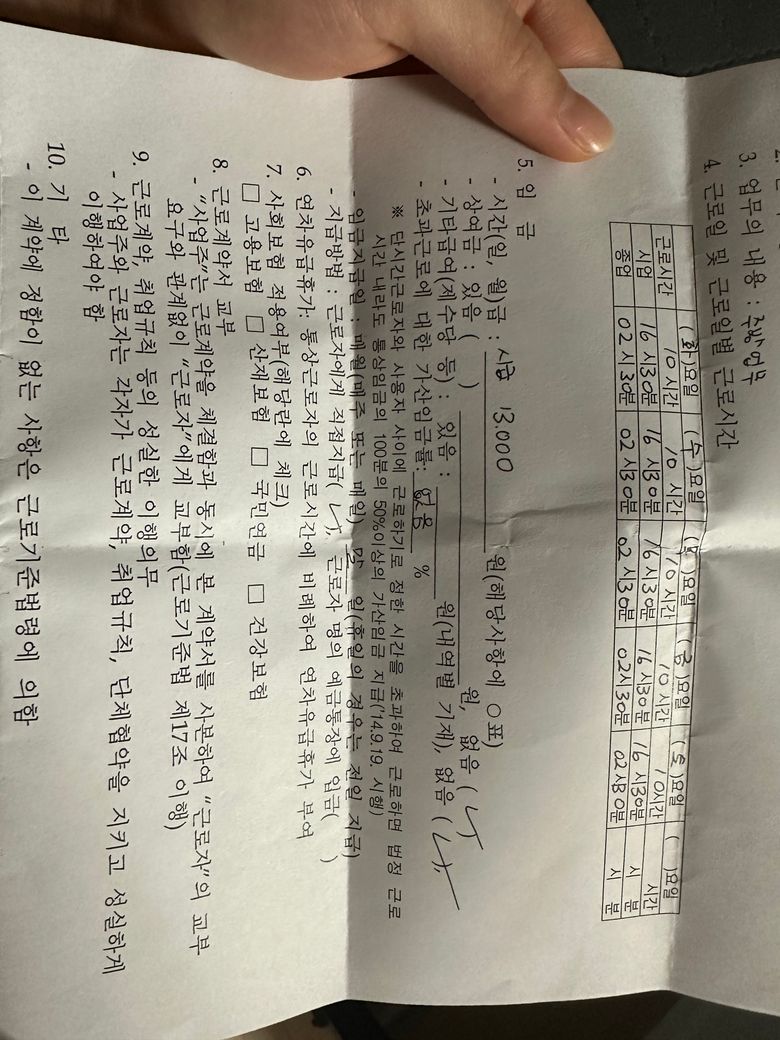 3. 업무의 내용 : 주방 업무
4. 근로일 및 근로일별 근로시간
(화)요일 (수)요일 (목)요일 (금)요일 (토)요일 ( )요일
근로시간 10시간 10시간 10시간 10시간 10시간 시간
시업 16시30분 16시30분 16시30분 16시30분 16시30분 시 분
종업 02시30분 02시30분 02시30분 02시30분 02시30분 시 분
5. 임 금
- 시간(일, 월)급 : 시급 13,000 원(해당사항에 ○표)
- 상여금 : 있음 ( ) 원, 없음 ( )
- 기타급여(제수당 등) : 있음 : 원(내역별 기재), 없음 ( )
- 초과근로에 대한 가산임금률: 없음 %
※ 단시간근로자와 사용자 사이에 근로하기로 정한 시간을 초과하여 근로하면 법정 근로
시간 내라도 통상임금의 100분의 50%이상의 가산임금 지급('14.9.19. 시행)
- 임금지급일 : 매월(매주 또는 매일) 말 일(휴일의 경우는 전일 지급)
- 지급방법 : 근로자에게 직접지급( ), 근로자 명의 예금통장에 입금( )
6. 연차유급휴가: 통상근로자의 근로시간에 비례하여 연차유급휴가 부여
7. 사회보험 적용여부(해당란에 체크)
□ 고용보험 □ 산재보험 □ 국민연금 □ 건강보험
8. 근로계약서 교부
- "사업주"는 근로계약을 체결함과 동시에 본 계약서를 사본하여 "근로자"의 교부
요구와 관계없이 "근로자"에게 교부함(근로기준법 제17조 이행)
9. 근로계약, 취업규칙 등의 성실한 이행의무
- 사업주와 근로자는 각자가 근로계약, 취업규칙, 단체협약을 지키고 성실하게
이행하여야 함
10. 기 타
- 이 계약에 정함이 없는 사항은 근로기준법령에 의함